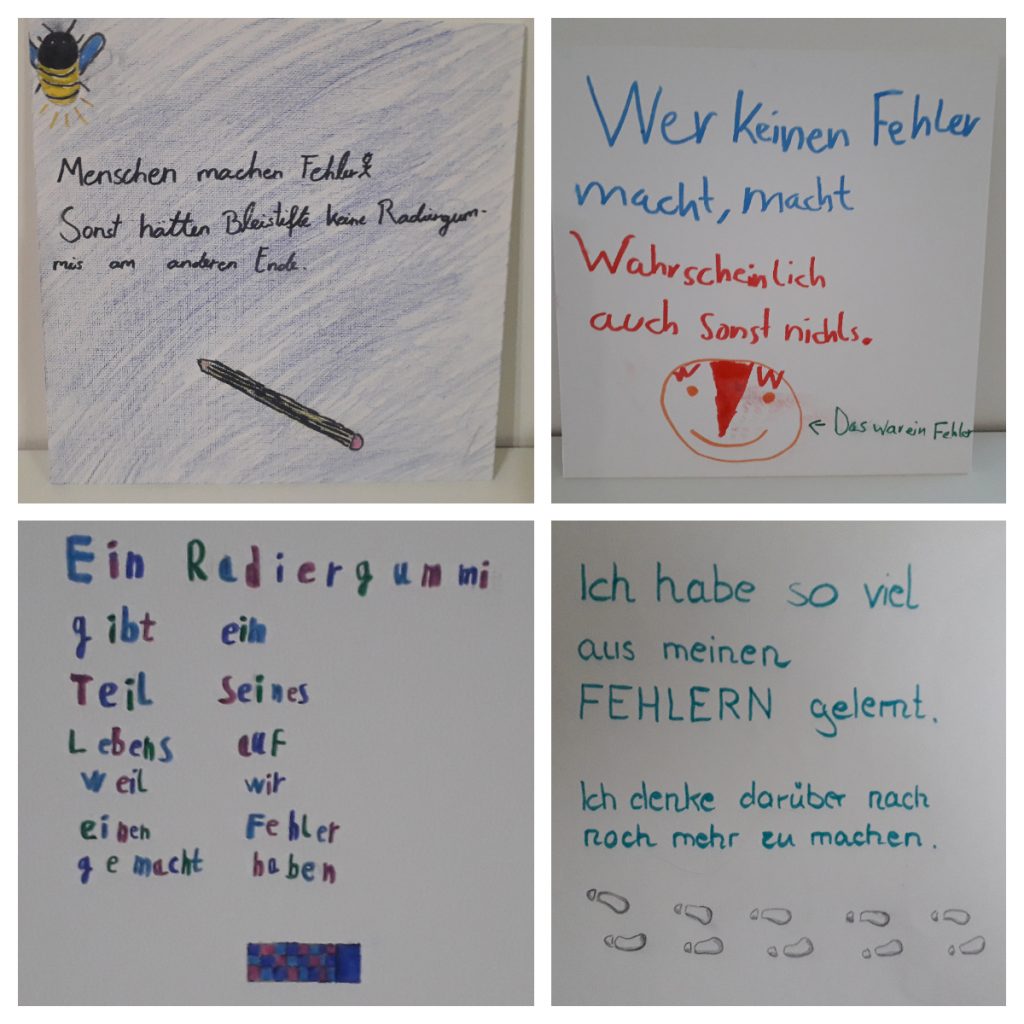 Menschen machen Fehler
Sonst hätten Bleistifte keine Radiergum-
mis am anderen Ende.
Wer keinen Fehler
macht, macht
Wahrscheinlich
auch sonst nichts.
W W
← Das war ein Fehler
Ein Radiergummi
gibt ein
Teil Seines
Lebens auf
weil wir
einen Fehler
gemacht haben
Ich habe so viel
aus meinen
FEHLERN gelernt.
Ich denke darüber nach
noch mehr zu machen.